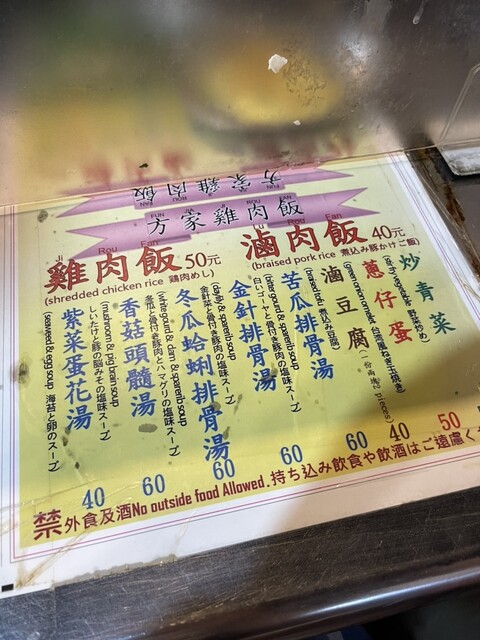 方家雞肉飯
方家雞肉飯
Ji Rou Fan
雞肉飯 50元
(shredded chicken rice 鶏肉めし)
Lu Rou Fan
滷肉飯 40元
(braised pork rice 煮込み豚かけご飯)
炒青菜
蔥仔蛋
滷豆腐
苦瓜排骨湯
白いゴーヤと骨付き豚肉の塩味スープ)
金針排骨湯
(daylily & sparerib soup
金針菜と骨付き豚肉の塩味スープ)
冬瓜蛤蜊排骨湯
(white gourd & clam & sparerib soup
冬瓜と骨付き豚肉とハマグリの塩味スープ)
香菇頭髓湯
(mushroom & pig brain soup
しいたけと豚の脳みその塩味スープ)
紫菜蛋花湯
(seaweed & egg soup 海苔と卵のスープ)
40 60 60 60 60 40 50
禁外食及酒No outside food Allowed.持ち込み飲食や飲酒はご遠慮く